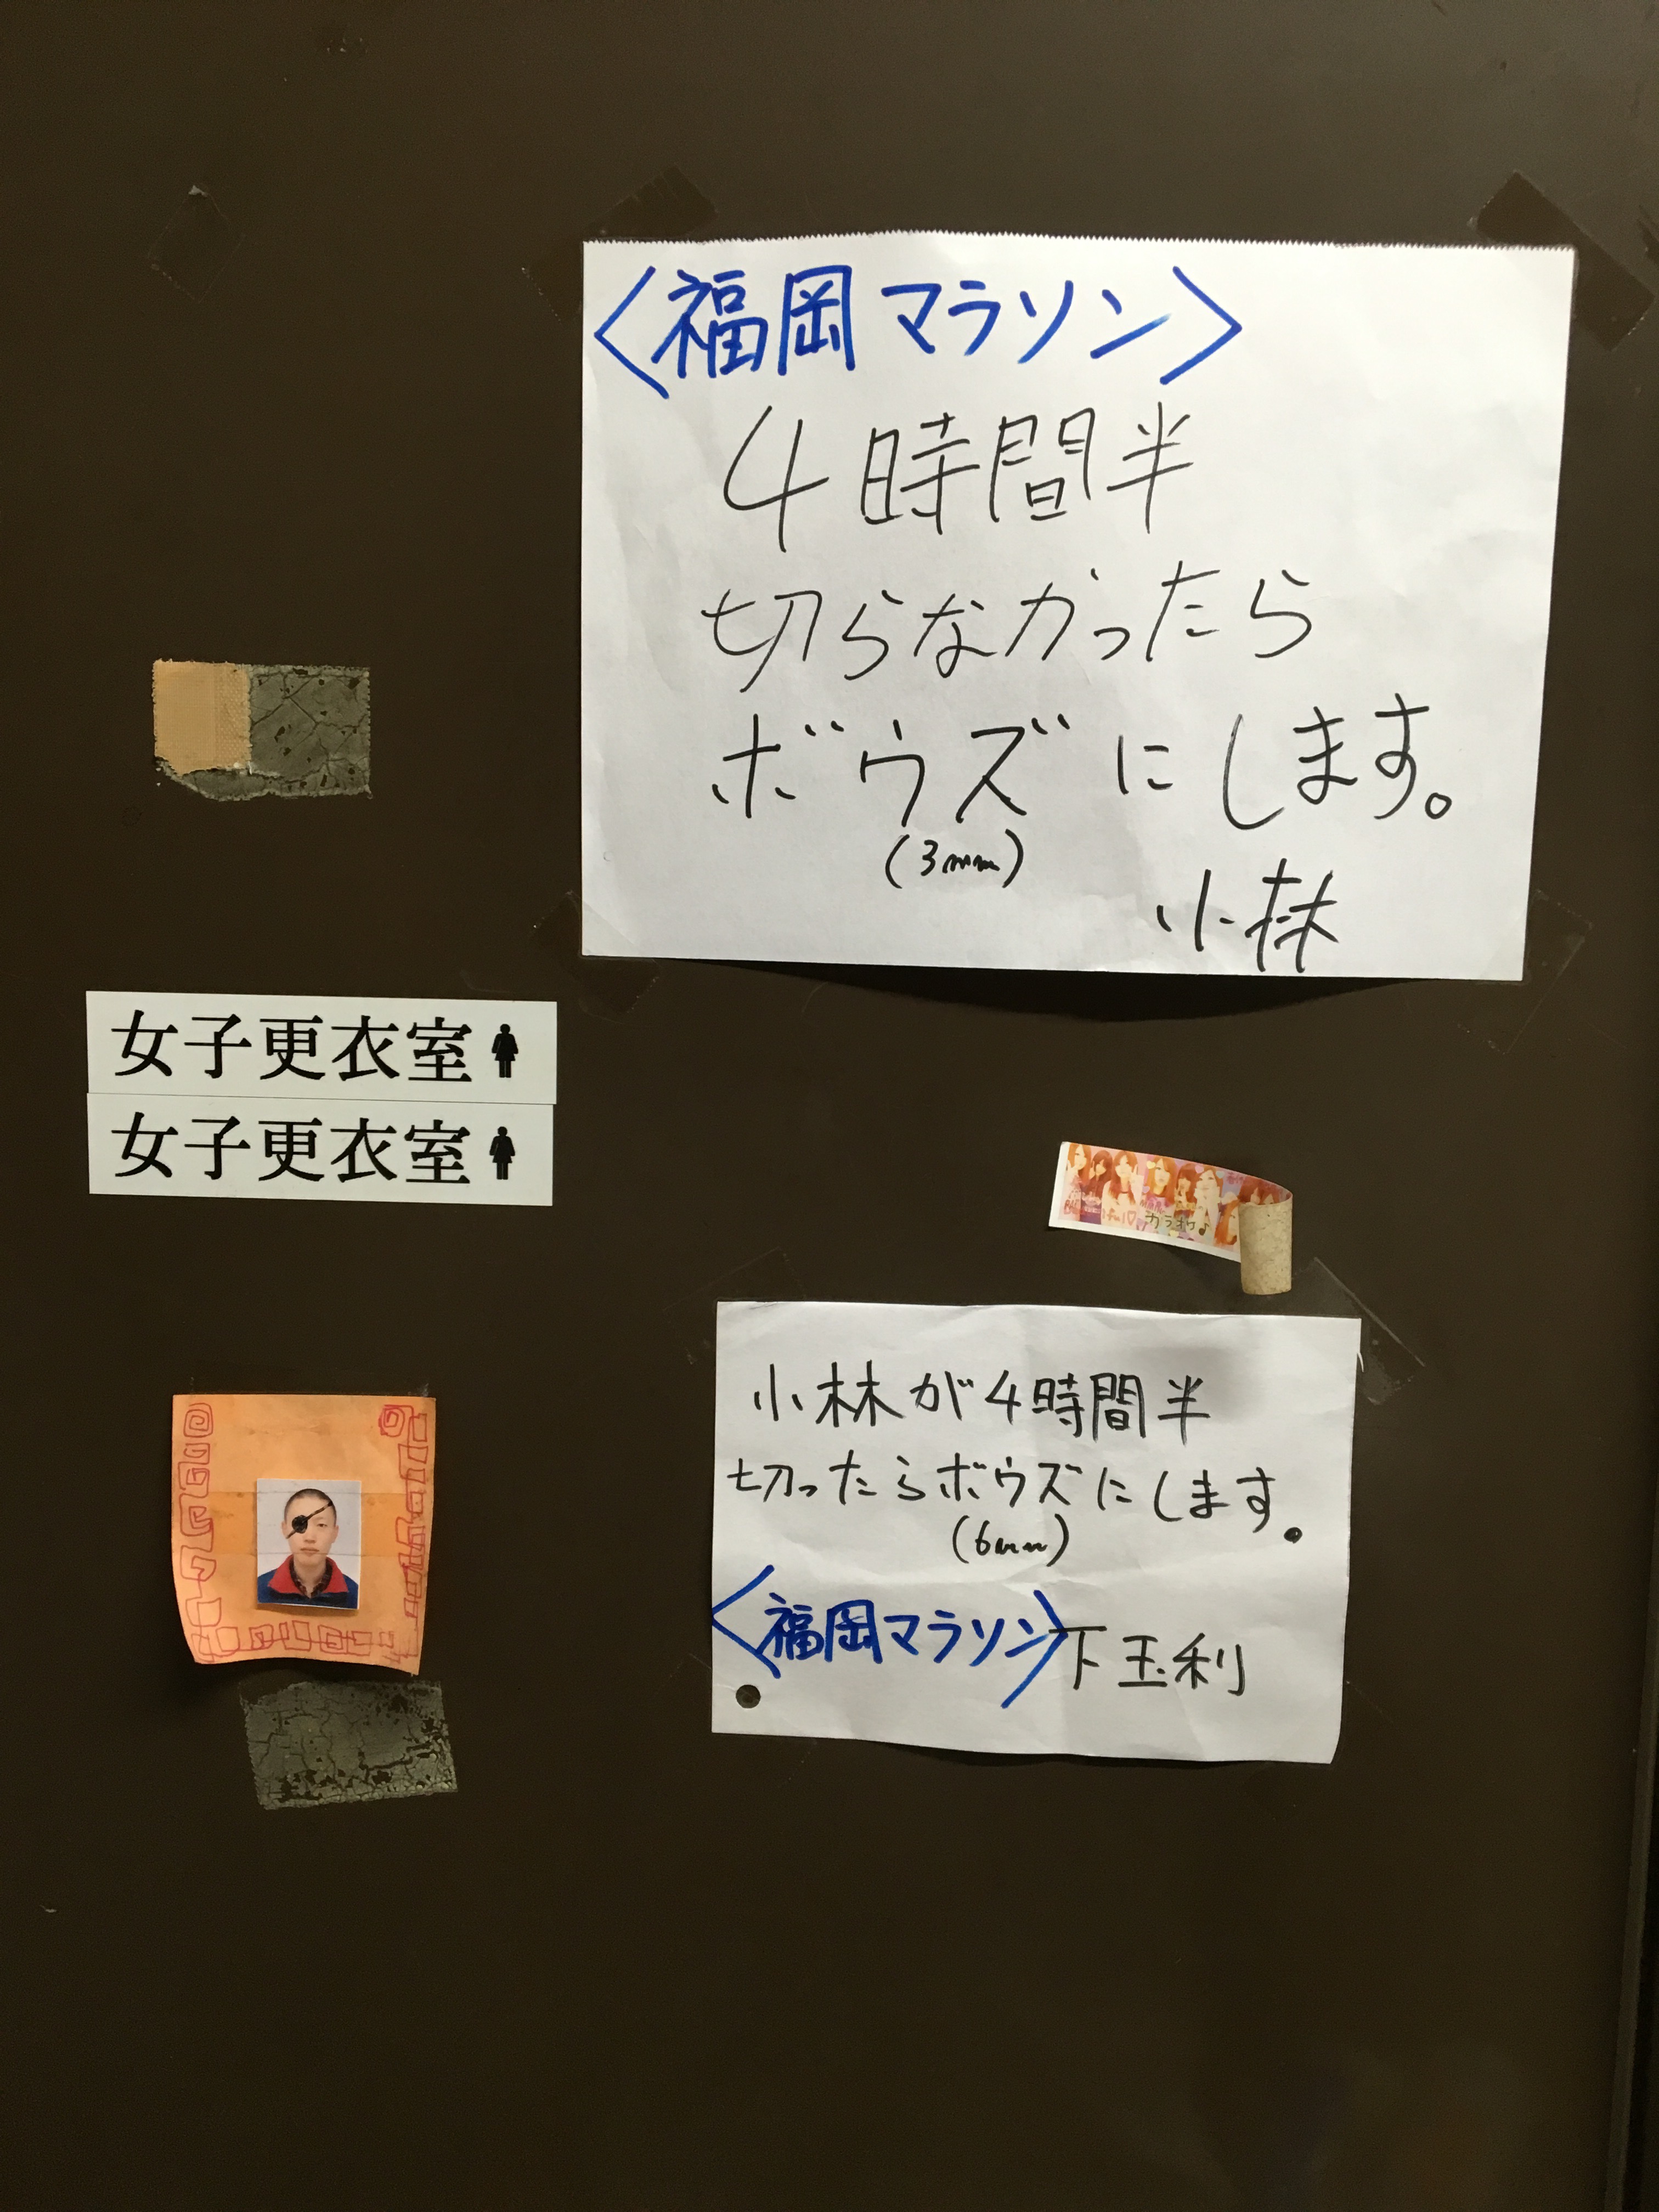 〈福岡マラソン〉
4時間半
切らなかったら
ボウズにします。
(3mm)
小林
女子更衣室
女子更衣室
カラオケ♪
小林が4時間半
切ったらボウズにします。
(6mm)
〈福岡マラソン〉下玉利